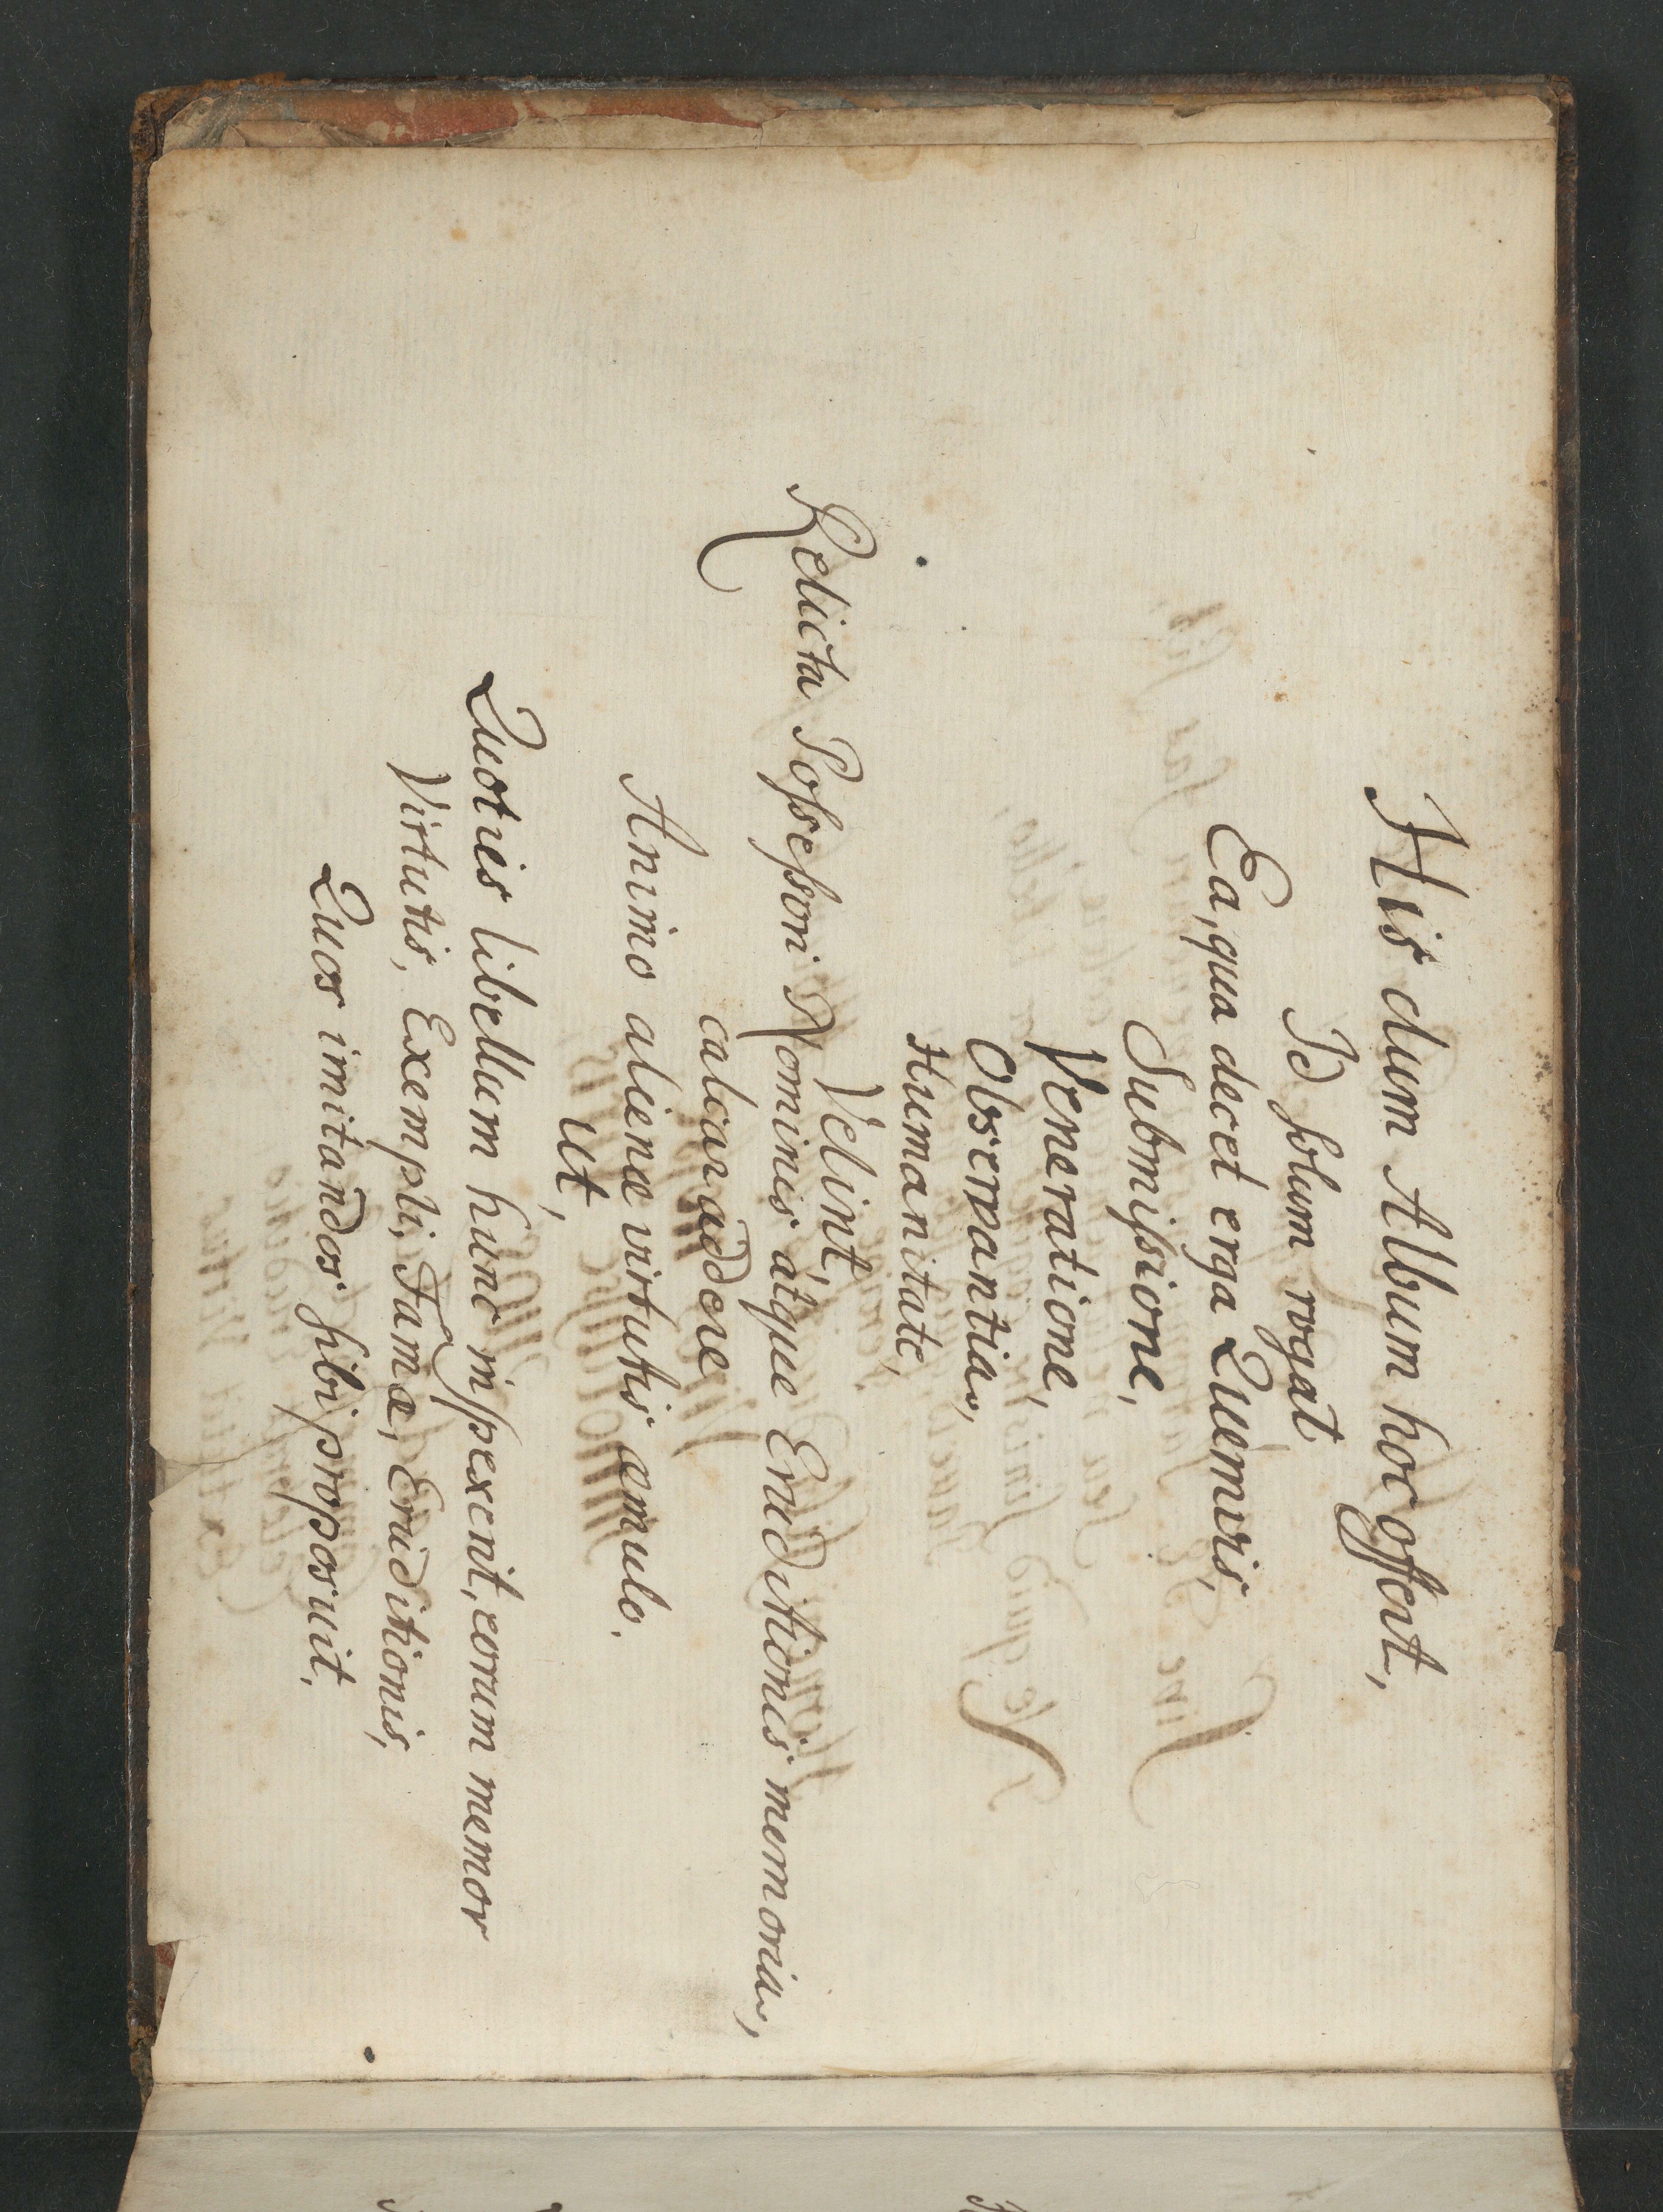 His dum Album hoc offert,
Id solum rogat
Ea, qua decet erga Quemvis,
Submissione,
Veneratione,
Observantia,
Humanitate,
Velint,
Relicta Possessori Nominis atque Eruditionis memoria,
calcar addere
Animo alienæ virtutis æmulo.
Ut,
Quoties libellum hunc inspexerit, eorum memor
Virtutis, Exempli, Famæ, Eruditionis,
Quos imitandos sibi proposuit.